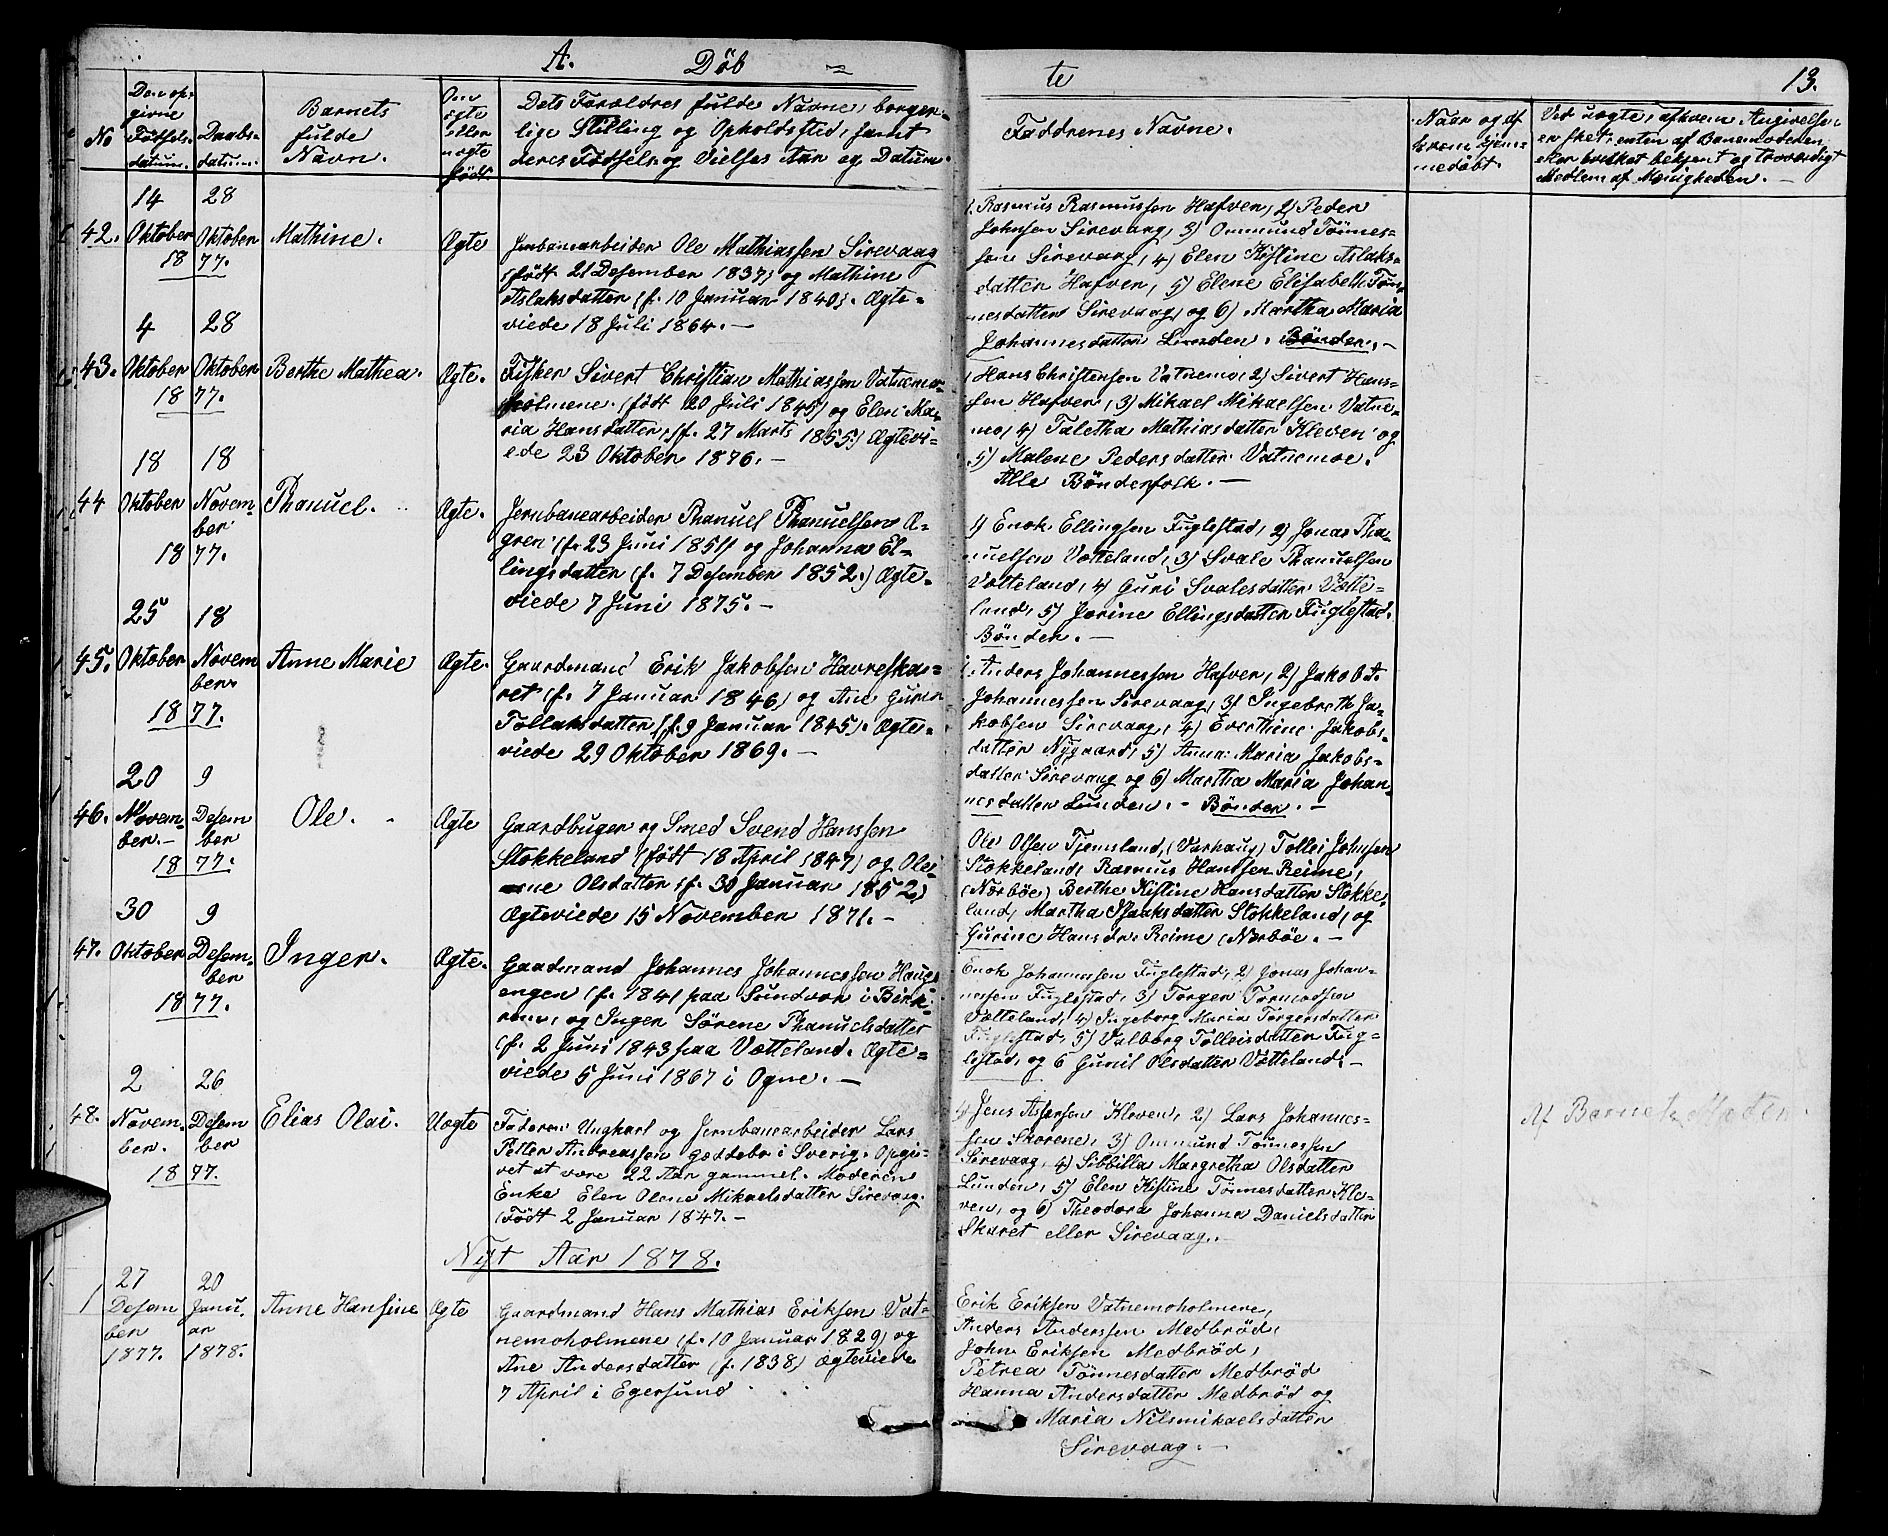 A. Døb = te 13.
No
Den op-
givne
Fødsels-
datum.
Daabs-
datum.
Barnets
fulde
Navn.
Om
ægte
eller
uægte
født.
Dets Forældres fulde Navne, borger-
lige Stilling og Opholdssted, samt
deres Fødsels og Vielses Aar og Datum.
Faddrenes Navne.
Naar og af
hvem hjem-
medøbt.
Ved uægte, af hvem Angivelse
er sket, enten af Barnemoderen
eller hvilket bekjent og troværdigt
Medlem af Menigheden. —
42.
14
Oktober
28
Oktober
1877.
Mathine.
Ægte
Jernbanearbeider Ole Mathiassen Sirevaag
(født 21 Desember 1837) og Mathine
Aslaksdatter (f. 10 Januar 1840). Ægte-
viede 18 Juli 1864. —
1. Rasmus Rasmussen Hafven, 2) Peder
Johnsen Sirevaag, 3) Ommund Tönnes-
sen Sirevaag, 4) Elen Kistine Aslaks-
datter Hafven, 5) Elene Elisabeth Tön-
nesdatter Sirevaag, og 6) Martha Maria
Johannesdatter Lunden. Bönder. —
43.
4
Oktober
28
Oktober
1877.
Berthe Mathea.
Ægte.
Fisker Sivert Christian Mathiassen Vatnemo-
holmene. (født 20 Juli 1845) og Elen Ma-
ria Hansdatter, (f. 27 Marts 1855.) Ægtevi-
ede 23 Oktober 1876. —
1 Hans Christensen Vatnemo, 2) Sivert Hans-
sen Hafven, 3) Mikael Mikaelsen Vatne-
mo, 4) Taletha Mathiasdatter Kleven og
5) Malene Pedersdatter Vatnemoe.
Alle Bönderfolk. —
44
18
Oktober
18
Novem-
ber
1877.
Thanuel.
Ægte.
Jernbanearbeider Thanuel Thanuelsen O-
gren (f. 23 Juni 1851) og Johanna El-
lingsdatter (f. 7 Desember 1852.) Ægte-
viede 7 Juni 1875. —
1) Enok Ellingsen Fuglestad, 2) Jonas Tha-
nuelsen Vætteland, 3) Svale Thanuelsen
Vætteland, 4) Guri Svalesdatter Vætte-
land, 5) Jorine Ellingsdatter Fuglestad.
Bönder. —
45.
25
Oktober
18
Novem
ber.
1877.
Anne Marie
Ægte.
Gaardmand Erik Jakobsen Havreska-
ret (f. 7 Januar 1846) og Ane Guren
Tollaksdatter (f. 9 Januar 1845). Ægte-
viede 29 Oktober 1869. —
1. Anders Johannessen Hafven, 2) Jakob A.
Johannessen Sirevaag, 3) Ingebreth Ja-
kobsen Sirevaag, 4) Everthine Jakobs-
datter Nygaard, 5) Anna Maria Jakobs-
datter Sirevaag og 6) Martha Maria Johan-
nesdatter Lunden. - Bönder. —
46.
20
Novem-
ber. —
9
Desem
ber
1877.
Ole.
Ægte
Gaardbuger og Smed Svend Hanssen
Stokkeland (født 18 April 1847) og Ole-
ne Olsdatter (f. 30 Januar 1852.)
Ægteviede 15 November 1871. —
Ole Olsen Tjemsland, (Varhaug) Tollei Johnsen
Stokkeland, Rasmus Hanssen Reime,
(Norböe) Berthe Kistine Hansdatter Stokke-
land, Martha Isaaksdatter Stokkeland, og
Gurine Hansdr. Reime (Norböe. —
47.
30
Oktober
9
Desem-
ber
1877.
Inger.
Ægte.
Gaardmand Johannes Johannessen Houg-
engen (f. 1841 paa Sundvor i Birk-
rem), og Inger Sörene Thanuelsdatter
(f. 2 Juni 1843 paa Vætteland. Ægte-
viede 5 Juni 1867 i Ogne. —
Enok Johannessen Fuglestad, 2) Jonas Johan-
nessen Fuglestad, 3) Torger Tormodsen
Vætteland, 4) Ingeborg Maria Torgersdatter
Fuglestad, 5) Valborg Tolleisdatter Fug-
lestad, og 6 Gunil Olsdatter Vætteland. —
48.
2
Novem-
ber.
26
Desem
ber
1877.
Elias Olai.
Uægte
Faderen Ungkarl og Jernbanearbeider Lars
Petter Andreassen Geddebo i Sverig. Opgi-
vet at være 22 Aar gammel. Moderen
Enke Elen Olene Mikaelsdatter Sirevaag.
(Født 2 Januar 1847. —
1) Jens Assersen Kleven, 2) Lars Johannes-
sen Skorene, 3) Ommund Tönnessen
Sirevaag, 4) Sibbilla Margretha Olsdatter
Lunden, 5) Elen Kistine Tönnesdatter Kle-
ven, og 6) Theodora Johanna Danielsdatter
Skaret eller Sirevaag. —
Af Barnets Moder.
Nyt Aar 1878.
1
27
Desem
ber
1877.
20
Janu-
ar
1878.
Anne Hansine
Ægte
Gaardmand Hans Mathias Eriksen Vat-
nemoholmene (f. 10 Januar 1829) og
Ane Andersdatter (f. 1838) Ægteviede
7 April i Egersund.
Erik Eriksen Vatnemoholmene,
Anders Anderssen Medbröd,
John Eriksen Medbröd,
Petrea Tönnesdatter Medbröd
Hanna Andersdatter Medbröd og
Maria Nilsmikaelsdatter
Sirevaag. —